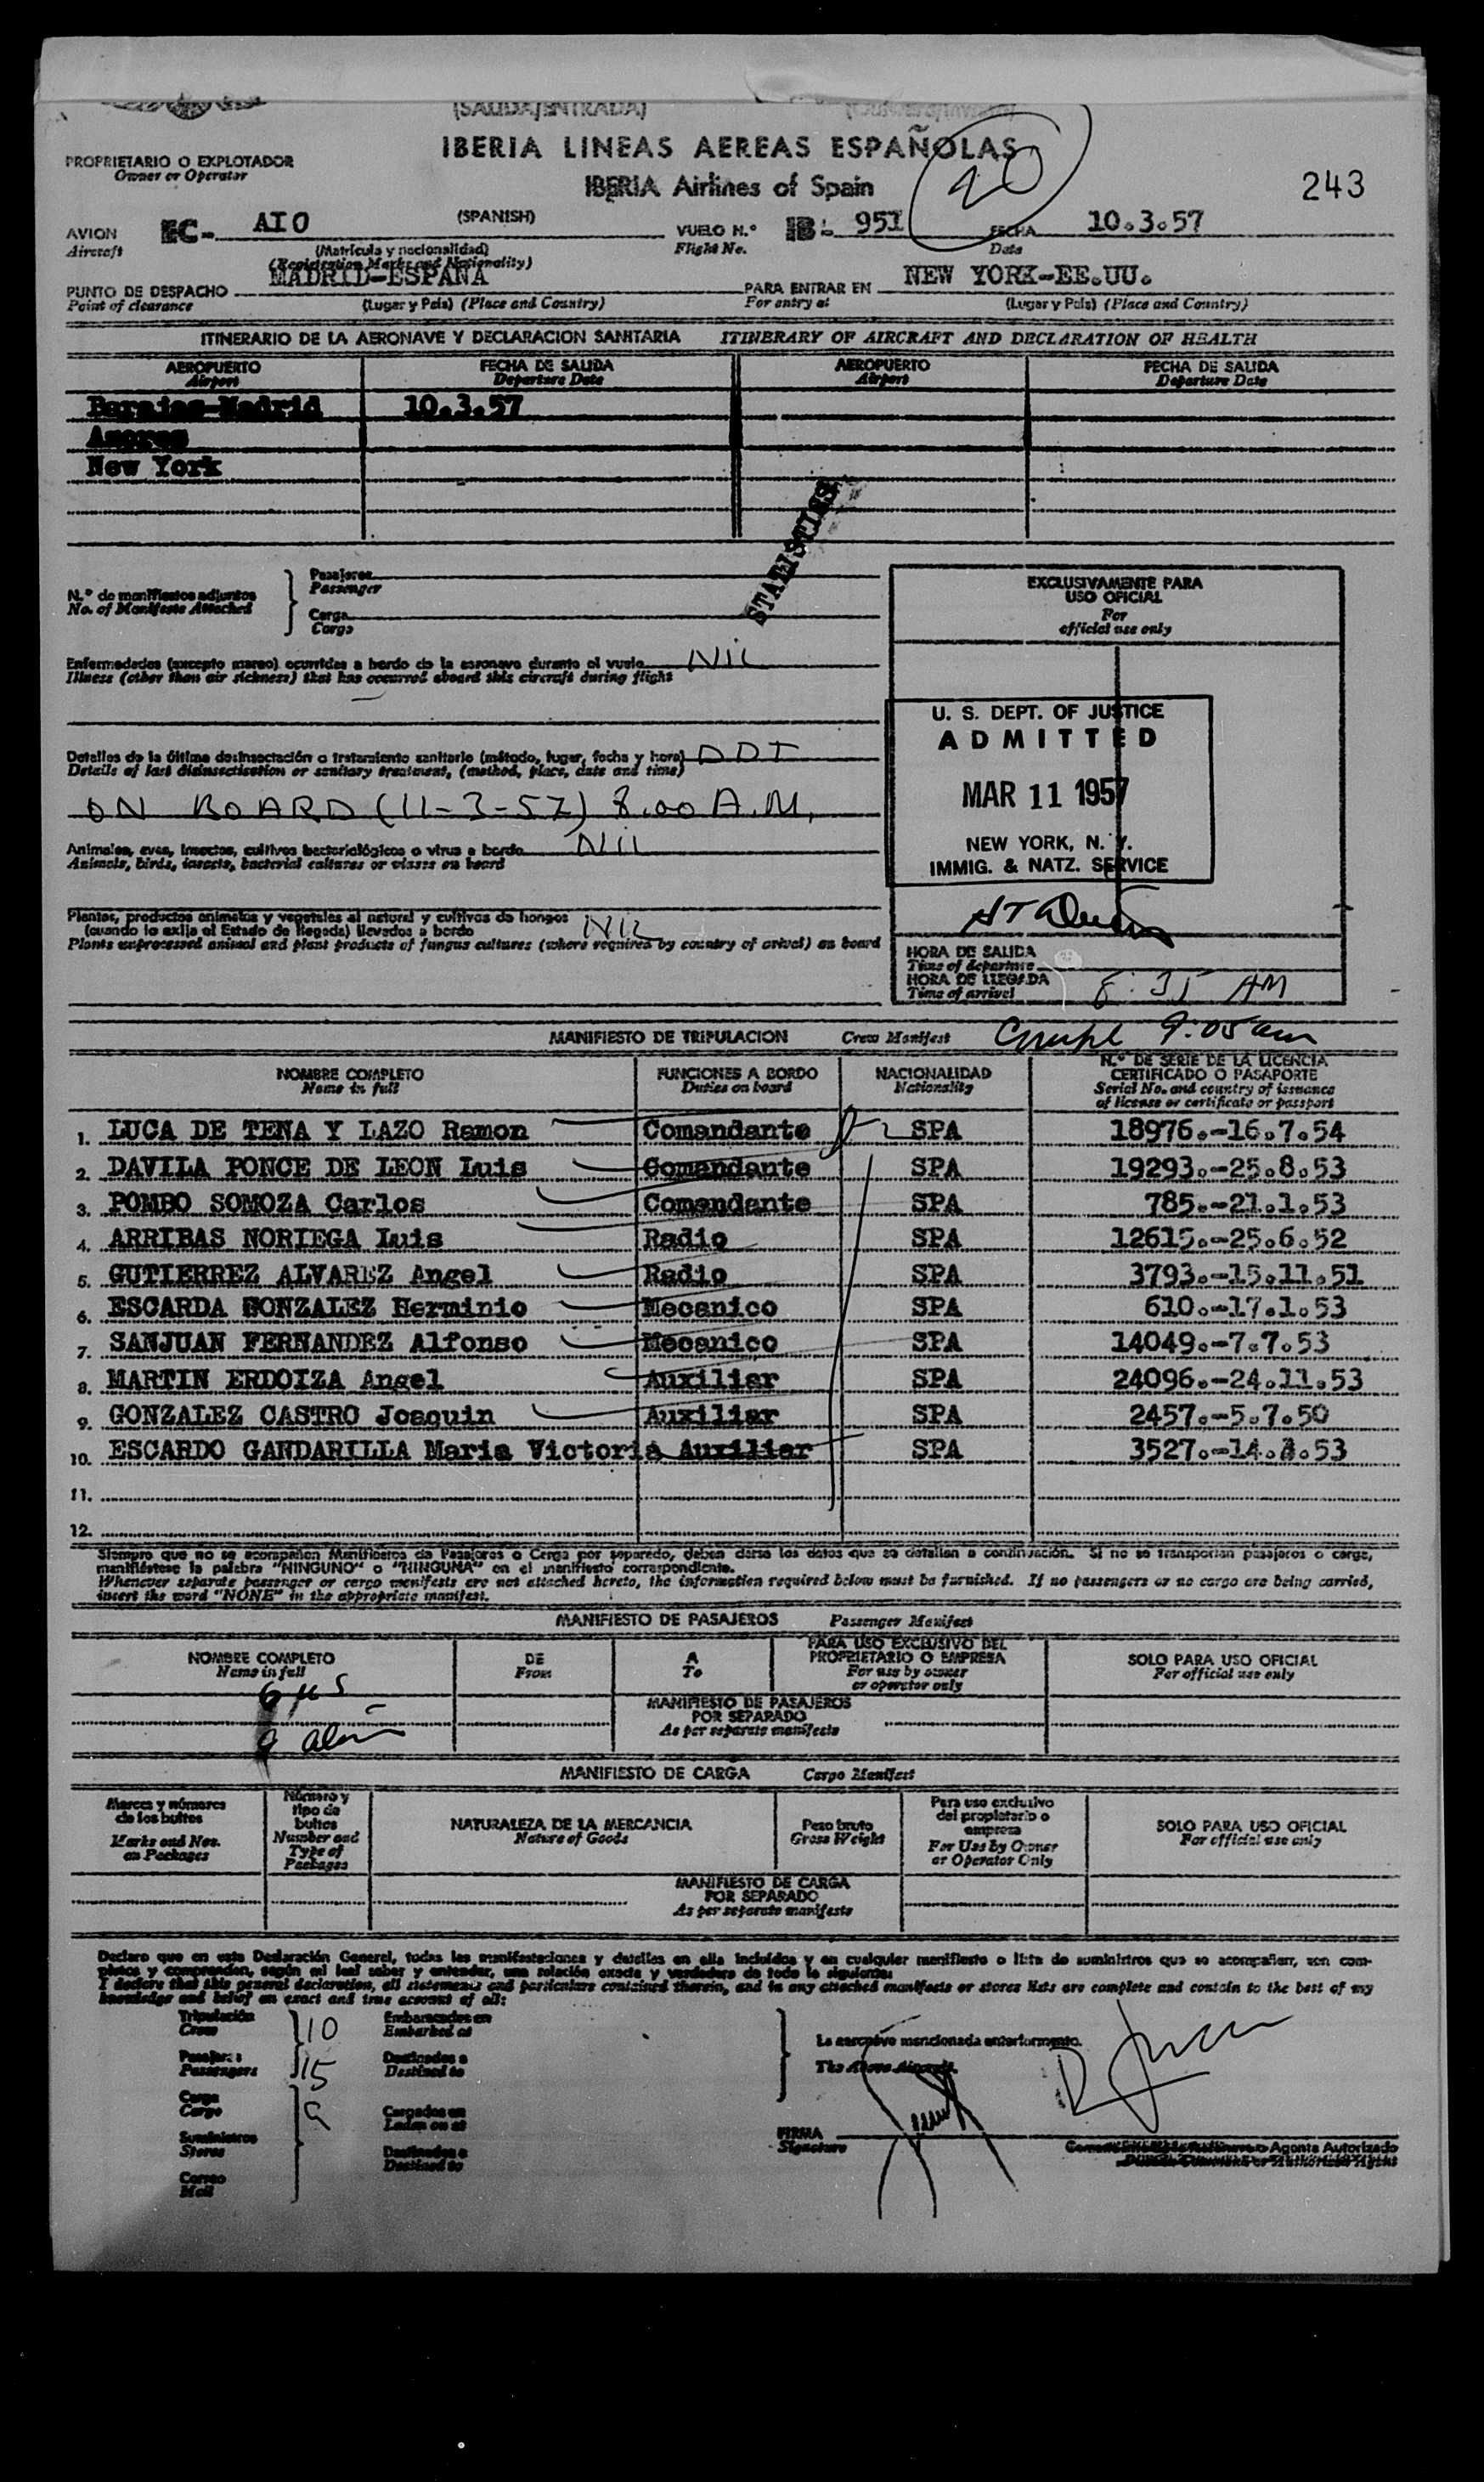 (SALIDA/ENTRADA)
IBERIA LINEAS AEREAS ESPAÑOLAS
PROPRIETARIO O EXPLOTADOR
Owner or Operator
IBERIA Airlines of Spain
20
243
AVION EC- AIO (SPANISH) VUELO N.° IB- 951 FECHA 10.3.57
Aircraft (Matrícula y nacionalidad) Flight No. Date
(Registration Marks and Nationality)
MADRID-ESPAÑA NEW YORK-EE.UU.
PUNTO DE DESPACHO PARA ENTRAR EN
Point of clearance (Lugar y País) (Place and Country) For entry at (Lugar y País) (Place and Country)
ITINERARIO DE LA AERONAVE Y DECLARACION SANITARIA ITINERARY OF AIRCRAFT AND DECLARATION OF HEALTH
AEROPUERTO FECHA DE SALIDA AEROPUERTO FECHA DE SALIDA
Airport Departure Date Airport Departure Date
Barajas-Madrid 10.3.57
Azores
New York
STATISTICS
N.° de manifiestos adjuntos
No. of Manifests Attached
Pasajeros
Passenger
Carga
Cargo
EXCLUSIVAMENTE PARA
USO OFICIAL
For
official use only
Enfermedades (excepto mareo) ocurridas a bordo de la aeronave durante el vuelo NIL
Illness (other than air sickness) that has occurred aboard this aircraft during flight
U. S. DEPT. OF JUSTICE
ADMITTED
MAR 11 1957
NEW YORK, N. Y.
IMMIG. & NATZ. SERVICE
Detalles de la última desinsectación o tratamiento sanitario (método, lugar, fecha y hora) DDT
Details of last disinsectisation or sanitary treatment, (method, place, date and time)
ON BOARD (11-3-57) 8.00 A.M.
Animales, aves, insectos, cultivos bacteriológicos o virus a bordo NIL
Animals, birds, insects, bacterial cultures or viruses on board
Plantas, productos animales y vegetales al natural y cultivos de hongos
(cuando lo exija el Estado de llegada) llevados a bordo NIL
Plants unprocessed animal and plant products of fungus cultures (where required by country of arival) on board
HORA DE SALIDA
Time of departure
HORA DE LLEGADA
Time of arrivel 8:35 AM
MANIFIESTO DE TRIPULACION Crew Manifest 9:05 am
NOMBRE COMPLETO FUNCIONES A BORDO NACIONALIDAD N.° DE SERIE DE LA LICENCIA
CERTIFICADO O PASAPORTE
Name in full Duties on board Nationality Serial No. and country of issuance
of license or certificate or passport
1. LUCA DE TENA Y LAZO Ramon Comandante SPA 18976.-16.7.54
2. DAVILA PONCE DE LEON Luis Comandante SPA 19293.-25.8.53
3. POMBO SOMOZA Carlos Comandante SPA 785.-21.1.53
4. ARRIBAS NORIEGA Luis Radio SPA 12615.-25.6.52
5. GUTIERREZ ALVAREZ Angel Radio SPA 3793.-15.11.51
6. ESCARDA GONZALEZ Herminio Mecanico SPA 610.-17.1.53
7. SANJUAN FERNANDEZ Alfonso Mecanico SPA 14049.-7.7.53
8. MARTIN ERDOIZA Angel Auxiliar SPA 24096.-24.11.53
9. GONZALEZ CASTRO Joaquin Auxiliar SPA 2457.-5.7.50
10. ESCARDO GANDARILLA Maria Victoria Auxiliar SPA 3527.-14.3.53
11.
12.
Siempre que no se acompañen Manifiestos de Pasajeros o Carga por separado, deben darse los datos que se detallan a continuación. Si no se transportan pasajeros o carga,
manifiéstese la palabra "NINGUNO" o "NINGUNA" en el manifiesto correspondiente.
Whenever separate passenger or cargo manifests are not attached hereto, the information required below must be furnished. If no passengers or no cargo are being carried,
insert the word "NONE" in the appropriate manifest.
MANIFIESTO DE PASAJEROS Passenger Manifest
NOMBRE COMPLETO DE A PARA USO EXCLUSIVO DEL
PROPRIETARIO O EMPRESA SOLO PARA USO OFICIAL
Name in full From To For use by owner
or operator only For official use only
6 US
9 alien
MANIFIESTO DE PASAJEROS
POR SEPARADO
As per separate manifests
MANIFIESTO DE CARGA Cargo Manifest
Marcas y números
de los bultos
Marks and Nos.
on Packages
Número y
tipo de
bultos
Number and
Type of
Packages
NATURALEZA DE LA MERCANCIA
Nature of Goods
Peso bruto
Gross Weight
Para uso exclusivo
del propietario o
empresa
For Use by Owner
or Operator Only
SOLO PARA USO OFICIAL
For official use only
MANIFIESTO DE CARGA
POR SEPARADO
As per separate manifests
Declaro que en esta Declaración General, todas las manifestaciones y detalles en ella incluidos y en cualquier manifiesto o lista de suministros que se acompañan, son com-
pletos y comprenden, según mi leal saber y entender, una relación exacta y verdadera de todo lo siguiente:
I declare that this general declaration, all statements and particulars contained therein, and in any attached manifests or stores lists are complete and contain to the best of my
knowledge and belief an exact and true account of all:
Tripulación
Crew 10
Embarcados en
Embarked at
Pasajeros
Passengers 15
Destinados a
Destined to
Carga
Cargo 9
Cargados en
Laden on at
Suministros
Stores
Destinados a
Destined to
Correo
Mail
La aeronave mencionada anteriormente.
The Above Aircraft.
FIRMA
Signature
Agente Autorizado